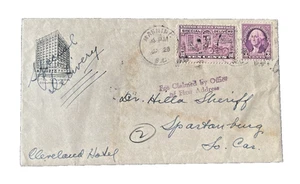 Special
Delivery
Fee Claimed by Office
of First Address
Dr. Hilla Sheriff
Spartanburg
So. Car.
Cleveland Hotel